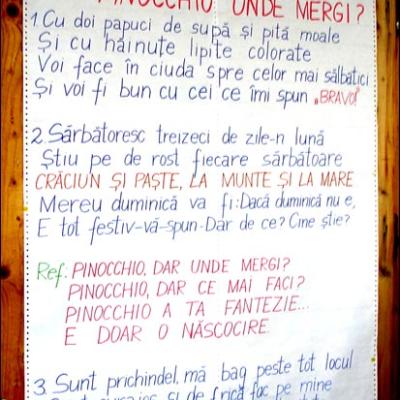 PINOCCHIO UNDE MERGI?
1. Cu doi papuci de supă și pită moale
Și cu hăinuțe lipite colorate
Voi face în ciuda spre celor mai sălbatici
Și voi fi bun cu cei ce îmi spun „BRAVO!"
2. Sărbătoresc treizeci de zile-n lună
Știu pe de rost fiecare sărbătoare
CRĂCIUN ȘI PAȘTE, LA MUNTE ȘI LA MARE
Mereu duminică va fi: Dacă duminică nu e,
E tot festiv-vă-spun-Dar de ce? Cine știe?
Ref: PINOCCHIO, DAR UNDE MERGI?
PINOCCHIO, DAR CE MAI FACI?
PINOCCHIO A TA FANTEZIE...
E DOAR O NĂSCOCIRE.
3. Sunt prichindel, mă bag peste tot locul
și de frică fac pe mine